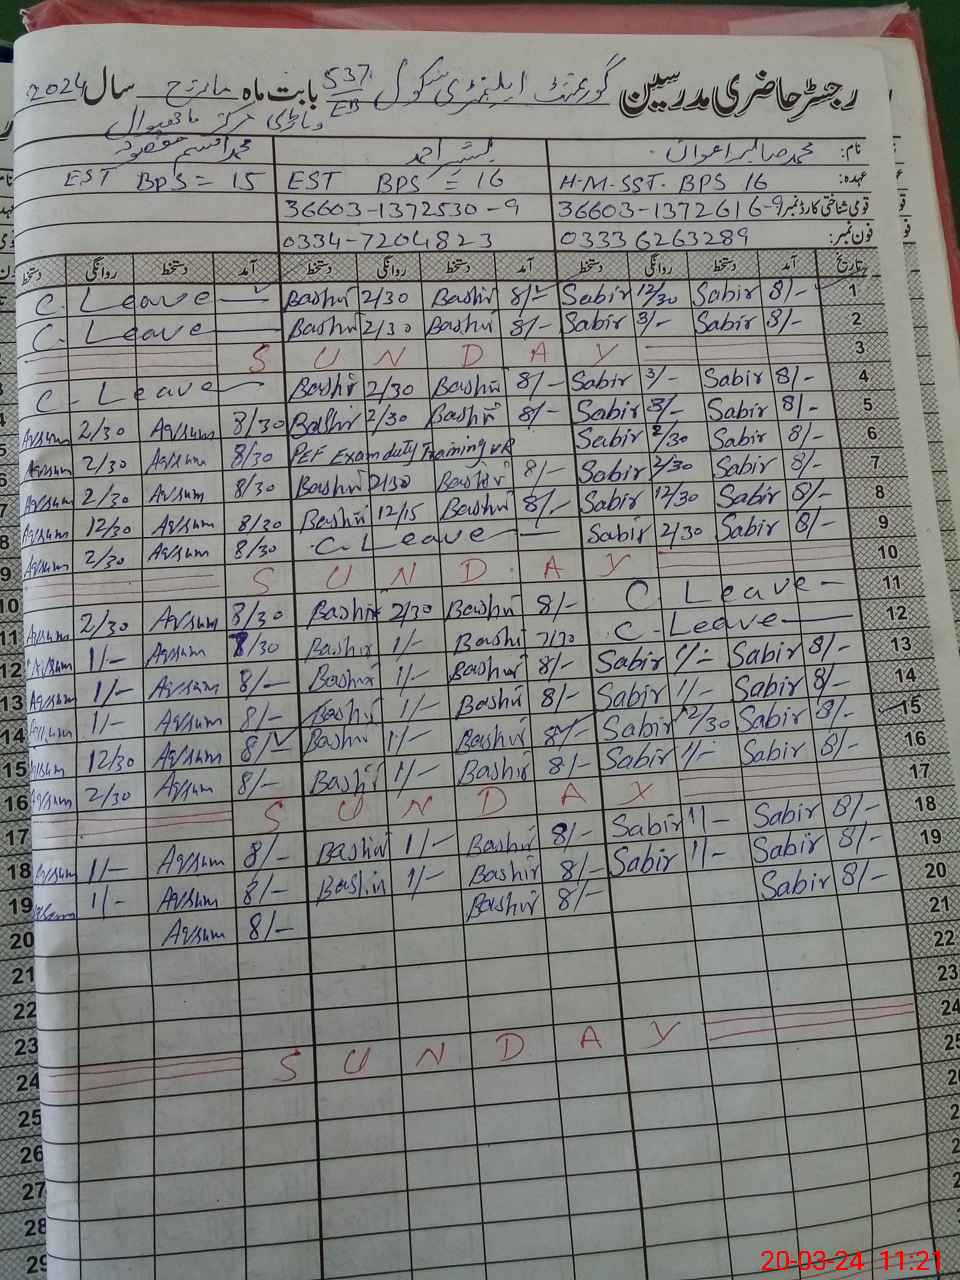 رجسٹر حاضری مدرسین گورنمنٹ ایلیمنٹری سکول 537/EB بابت ماہ مارچ سال 2024
وہاڑی مرکز ماچھیوال
نام: محمد صابر اعوان بشیر احمد محمد
عہدہ: H.M.SST. BPS 16 EST BPS = 16 EST BPS = 15
قومی شناختی کارڈ نمبر 36603-1372616-9 36603-1372530-9
فون نمبر: 03336263289 0334-7204823
تاریخ آمد دستخط روانگی دستخط آمد دستخط روانگی دستخط آمد دستخط روانگی دستخط
C. Leave Bashir 2/30 Bashir 8/- Sabir 12/30 Sabir 8/- 1
C. Leave Bashir 2/30 Bashir 8/- Sabir 3/- Sabir 8/- 2
SUNDAY 3
C. Leave Bashir 2/30 Bashir 8/- Sabir 3/- Sabir 8/- 4
Aqsum 2/30 Aqsum 8/30 Bashir 2/30 Bashir 8/- Sabir 3/- Sabir 8/- 5
Aqsum 2/30 Aqsum 8/30 PEF Exam duty Training Sabir 2/30 Sabir 8/- 6
Aqsum 2/30 Aqsum 8/30 Bashir 2/30 Bashir 8/- Sabir 2/30 Sabir 8/- 7
Aqsum 12/30 Aqsum 8/30 Bashir 12/15 Bashir 8/- Sabir 12/30 Sabir 8/- 8
Aqsum 2/30 Aqsum 8/30 C. Leave Sabir 2/30 Sabir 8/- 9
SUNDAY 10
Aqsum 2/30 Aqsum 8/30 Bashir 2/30 Bashir 8/- C. Leave 11
Aqsum 1/- Aqsum /30 Bashir 1/- Bashir 7/30 C. Leave 12
Aqsum 1/- Aqsum 8/- Bashir 1/- Bashir 8/- Sabir 1/- Sabir 8/- 13
Aqsum 1/- Aqsum 8/- Bashir 1/- Bashir 8/- Sabir 1/- Sabir 8/- 14
Aqsum 12/30 Aqsum 8/- Bashir 1/- Bashir 8/- Sabir 12/30 Sabir 8/- 15
Aqsum 2/30 Aqsum 8/- Bashir 1/- Bashir 8/- Sabir 1/- Sabir 8/- 16
SUNDAY 17
Aqsum 1/- Aqsum 8/- Bashir 1/- Bashir 8/- Sabir 1/- Sabir 8/- 18
Aqsum 1/- Aqsum 8/- Bashir 1/- Bashir 8/- Sabir 1/- Sabir 8/- 19
Aqsum 8/- Bashir 8/- Sabir 8/- 20
21
22
23
SUNDAY 24
25
26
27
28
29
20-03-24 11:21